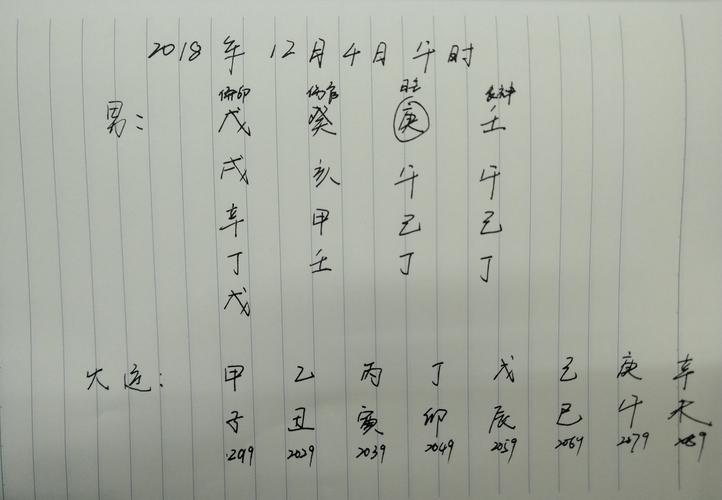 2018年12月4日午时
偏印 伤官 日主 食神
男: 戊 癸 庚 壬
戌 亥 午 午
辛 甲 己 己
丁 壬 丁 丁
戊
大运: 甲 乙 丙 丁 戊 己 庚 辛
子 丑 寅 卯 辰 巳 午 未
2019 2029 2039 2049 2059 2069 2079 2089